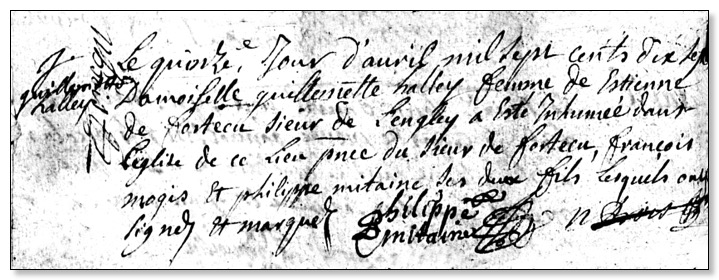 guillemette
halley
Le quinze.e Jour d'auril mil sept cents dix sept
Damoiselle guillemette halley femme de Estienne
de fortecu sieur de Lengley a Este Inhumeé dans
L'eglise de ce Lieu pnce du sieur de fortecu, francois
mogis et philippe mitaine ses deux fils lesquels ont
signé et marqué
philippe
mitaine